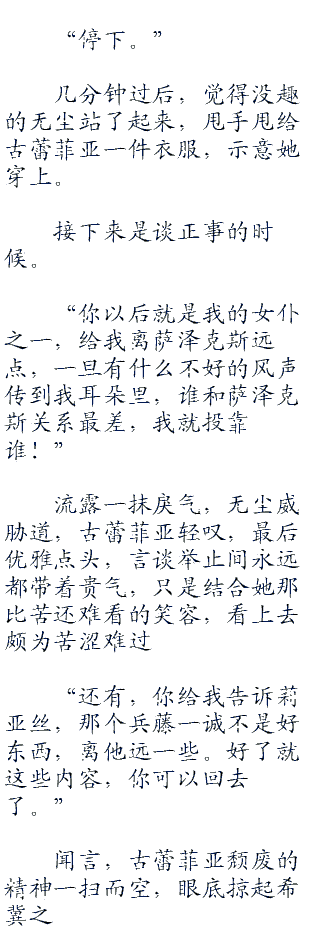 “停下。”
几分钟过后，觉得没趣
的无尘站了起来，甩手甩给
古蕾菲亚一件衣服，示意她
穿上。
接下来是谈正事的时
候。
“你以后就是我的女仆
之一，给我离萨泽克斯远
点，一旦有什么不好的风声
传到我耳朵里，谁和萨泽克
斯关系最差，我就投靠
谁！”
流露一抹戾气，无尘威
胁道，古蕾菲亚轻叹，最后
优雅点头，言谈举止间永远
都带着贵气，只是结合她那
比苦还难看的笑容，看上去
颇为苦涩难过
“还有，你给我告诉莉
亚丝，那个兵藤一诚不是好
东西，离他远一些。好了就
这些内容，你可以回去
了。”
闻言，古蕾菲亚颓废的
精神一扫而空，眼底掠起希
冀之